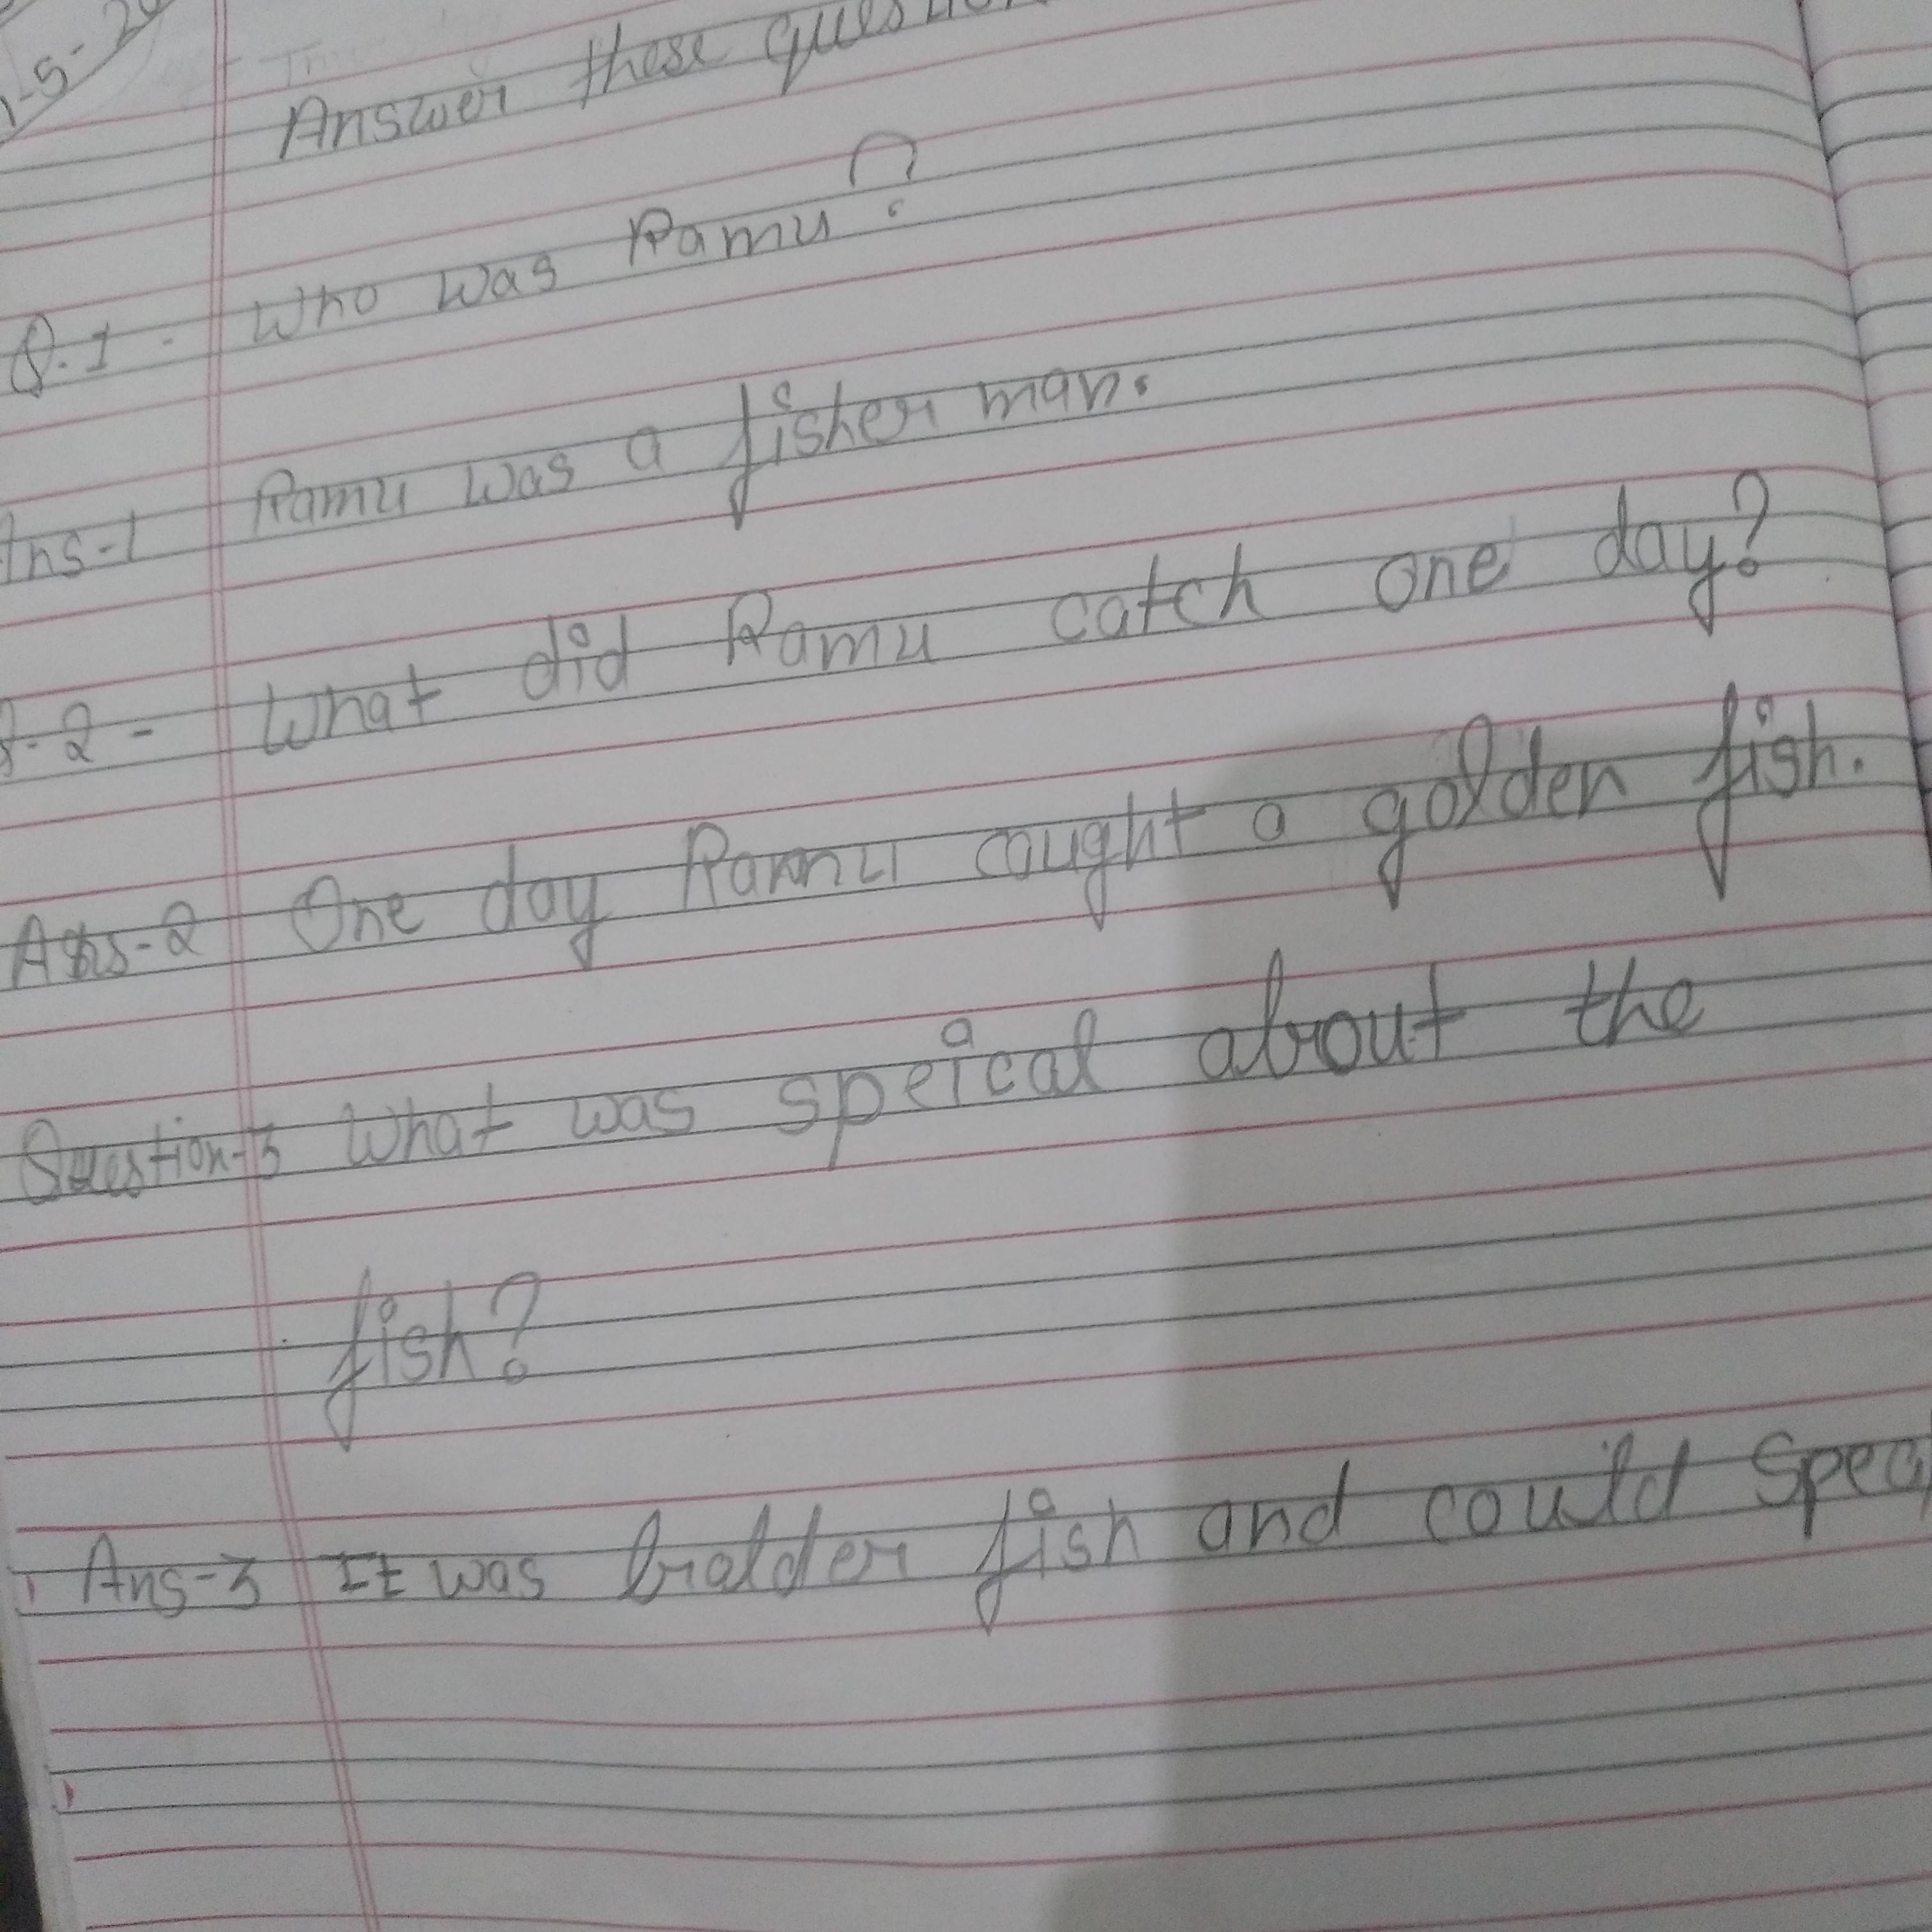 Answer these
Q.1 - Who was Ramu?
Ans-1 Ramu was a fisher man.
2 - What did Ramu catch one day?
Ans-2 One day Ramu caught a golden fish.
Question-3 What was speical about the
fish?
Ans-3 It was bralder fish and could